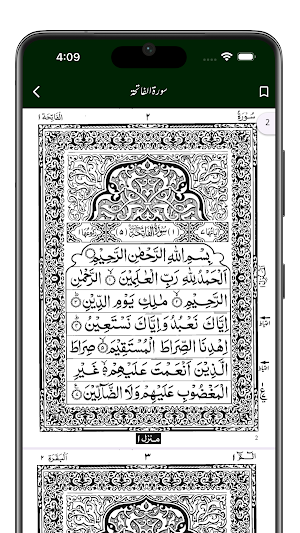 4:09
سورة الفاتحة
الفَاتِحَة ١ ٢ سُوْرَةُ
2
سُوْرَةُ الْفَاتِحَةِ (٥)
بِسْمِ اللّٰهِ الرَّحْمٰنِ الرَّحِيْمِ
اَلْحَمْدُ لِلّٰهِ رَبِّ الْعٰلَمِيْنَ ۙ۝١ الرَّحْمٰنِ
الرَّحِيْمِ ۙ۝٢ مٰلِكِ يَوْمِ الدِّيْنِ ؕ۝٣
اِيَّاكَ نَعْبُدُ وَاِيَّاكَ نَسْتَعِيْنُ ؕ۝٤
اِهْدِنَا الصِّرَاطَ الْمُسْتَقِيْمَ ۙ۝٥ صِرَاطَ
الَّذِيْنَ اَنْعَمْتَ عَلَيْهِمْ ۙ۝٦ غَيْرِ
الْمَغْضُوْبِ عَلَيْهِمْ وَلَا الضَّآلِّيْنَ ۝٧
منزل ١
2
البَقَرَة ٢ ٣ الٓمّٓ ١